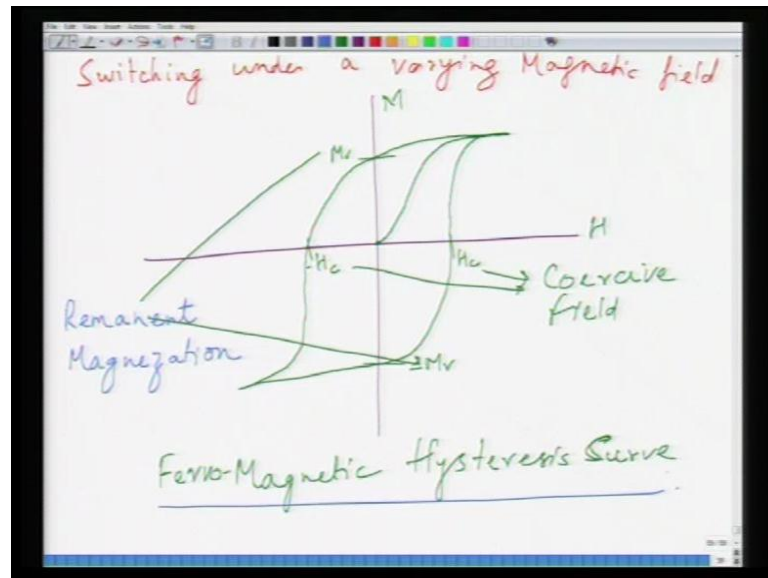 File Edit View Insert Actions Tools Help
Switching under a varying Magnetic field
M
Mr
H
-Hc
Hc
Coercive
field
Remanent
Magnezation
-Mr
Ferro-Magnetic Hysteresis Surve